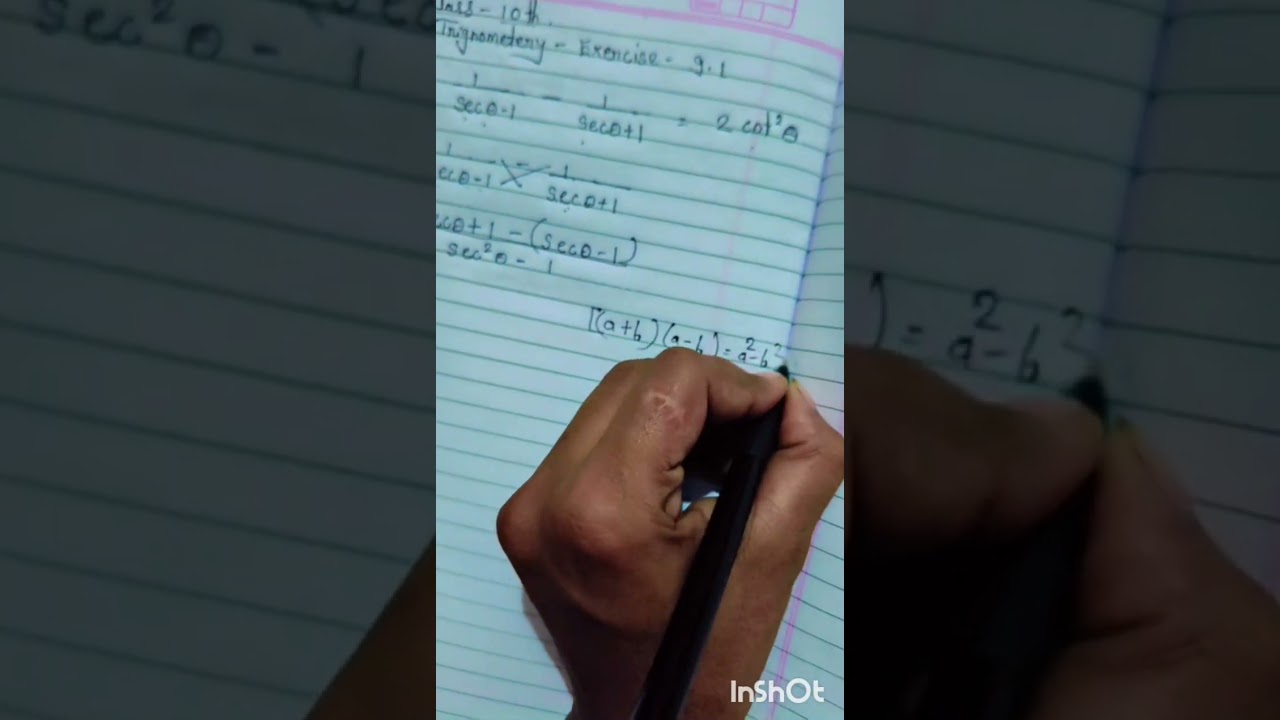 lass - 10th.
Trignometery - Exercise - 9.1
1/secθ-1 - 1/secθ+1 = 2 cot²θ
1/ecθ-1 - 1/secθ+1
ecθ+1 - (secθ-1)/sec²θ - 1
[(a+b)(a-b) = a²-b²
sec²θ - 1
) = a²-b²
InShOt